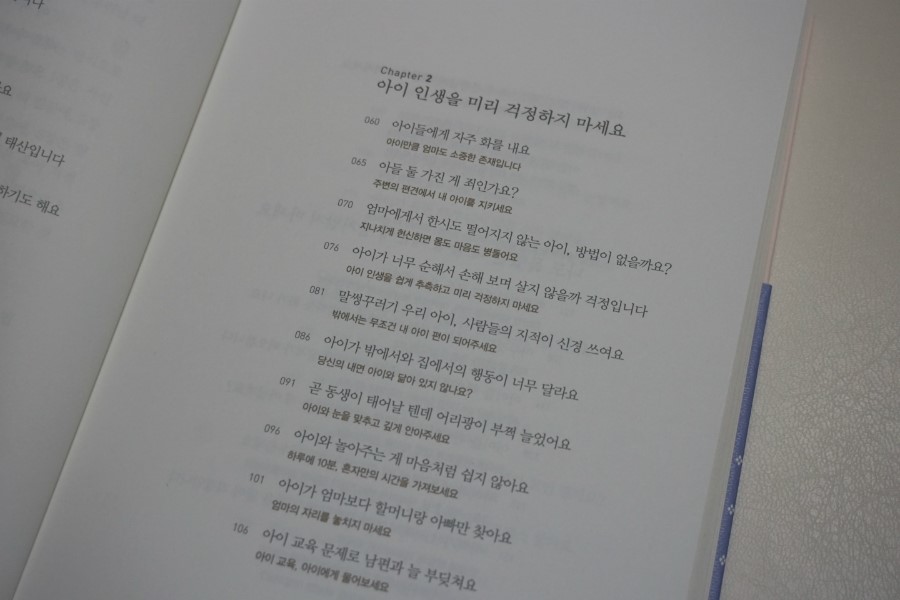 요
태산입니다
하기도 해요
Chapter 2
아이 인생을 미리 걱정하지 마세요
060 아이들에게 자주 화를 내요
아이만큼 엄마도 소중한 존재입니다
065 아들 둘 가진 게 죄인가요?
주변의 편견에서 내 아이를 지키세요
070 엄마에게서 한시도 떨어지지 않는 아이, 방법이 없을까요?
지나치게 헌신하면 몸도 마음도 병들어요
076 아이가 너무 순해서 손해 보며 살지 않을까 걱정입니다
아이 인생을 쉽게 추측하고 미리 걱정하지 마세요
081 말썽꾸러기 우리 아이, 사람들의 지적이 신경 쓰여요
밖에서는 무조건 내 아이 편이 되어주세요
086 아이가 밖에서와 집에서의 행동이 너무 달라요
당신의 내면 아이와 닮아 있지 않나요?
091 곧 동생이 태어날 텐데 어리광이 부쩍 늘었어요
아이와 눈을 맞추고 길게 안아주세요
096 아이와 놀아주는 게 마음처럼 쉽지 않아요
하루에 10분, 혼자만의 시간을 가져보세요
101 아이가 엄마보다 할머니랑 아빠만 찾아요
엄마의 자리를 놓치지 마세요
106 아이 교육 문제로 남편과 늘 부딪쳐요
아이 교육, 아이에게 물어보세요